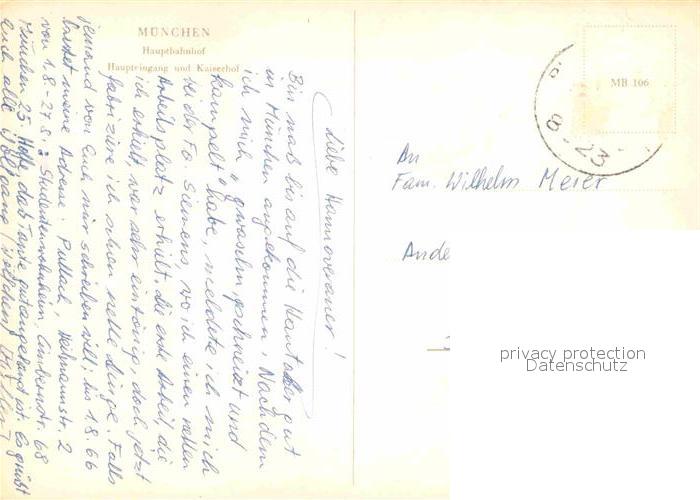 MÜNCHEN
Hauptbahnhof
Haupteingang und Kaiserhof
Liebe Hannoveraner!
Bin naß bis auf die Haut aber gut
in München angekommen. Nachdem
ich mich " gewaschn, gschneizt und
kampelt" habe, meldete ich mich
bei der Fa Siemens, wo ich einen netten
Arbeitsplatz erhielt. die erste Arbeit, die
ich erhielt war sehr eintönig, doch jetzt
fabriziere ich schon nette Dinge. Falls
jemand von Euch mir schreiben will: bis 1.8.66
lautet meine Adresse: Pullach, 2
von 1.8-27.8.: Studentenwohnheim, 68
München 25. Hoffe, das Tante gut angelangt ist. Es grüßt
Euch alle Wolfgang
MB 106
8-23
An
Fam. Wilhelm Meier
Ande
privacy protection
Datenschutz